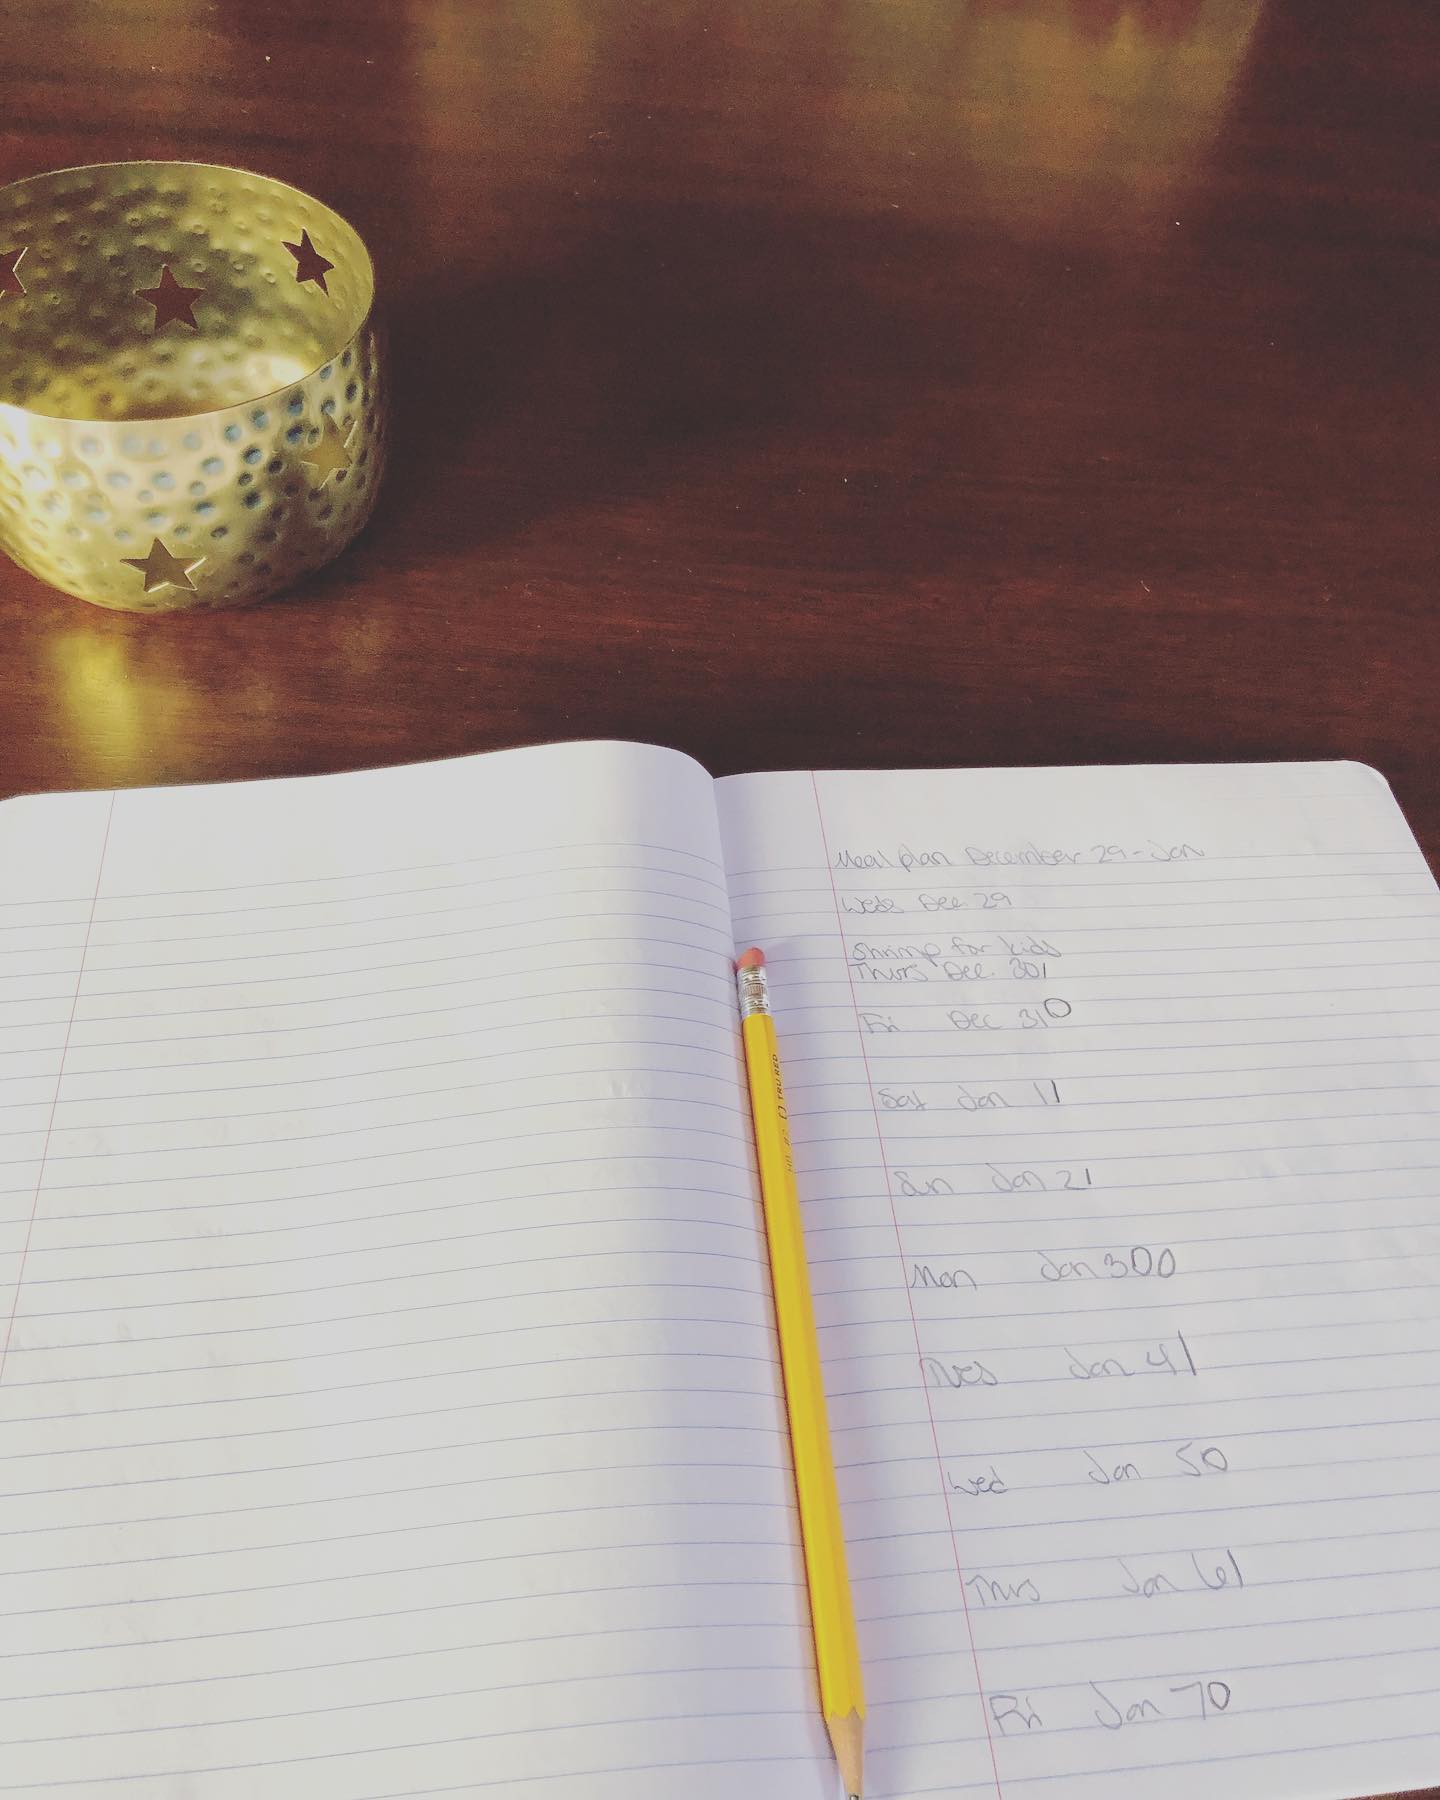 Meal plan December 29-Jan
Weds Dec 29
Shrimp for kids
Thurs Dec. 301
Fri Dec 310
Sat Jan 11
Sun Jan 21
Mon Jan 300
Tues Jan 41
Wed Jan 50
Thurs Jan 61
Fri Jan 70
TRU RED
HB #2